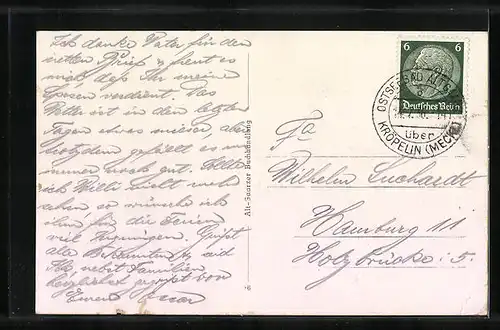 Ich danke Vater für den
netten Brief u freut es
mich daß Ihr meine
verdient. Das
Wetter ist in den letzten
Tagen etwas mieser aber
trotzdem gefällt es mir
immer noch gut. Sollte
ich Willi nicht mehr
sehen so wünsche ich
ihm für die Ferien
viel Vergnügen. Grüßt
alle Bekannten u seid
Ihr nebst Familien
herzlichst gegrüßt von
Eurer
Alt-Gaarzer Buchhandlung
6 6
Deutsches Reich
OSTSEEBAD ALT G
über
KRÖPELIN (MECKL)
Fa
Wilhelm Suchardt
Hamburg 11
Holzbrücke: 5.